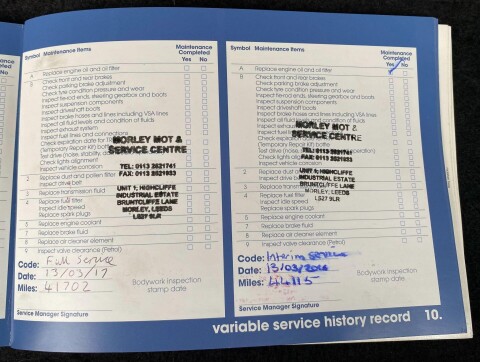 Symbol Maintenance Items Maintenance Completed
Yes No
A Replace engine oil and oil filter
B Check front and rear brakes
Check parking brake adjustment
Check tyre condition and pressure
Inspect tie-rod ends, steering gearbox and boots
Inspect suspension components
Inspect driveshaft boots
Inspect brake hoses and lines including VSA lines
Inspect all fluid levels and condition of fluids
Inspect exhaust system
Inspect fuel lines and connections
Check expiration date for
(Temporary Repair Kit) bottle
Test drive (noise, stability,
Check lights alignment
Inspect vehicle corrosion
2 Replace dust and pollen filter
Inspect drive belt
3 Replace transmission fluid
4 Replace fuel filter
Inspect idle speed
Replace spark plugs
5 Replace engine coolant
7 Replace brake fluid
8 Replace air cleaner element
9 Inspect valve clearance (Petrol)
MORLEY MOT &
SERVICE CENTRE
TEL: 0113 2521741
FAX: 0113 2521933
UNIT 1, HIGHCLIFFE
INDUSTRIAL ESTATE
BRUNTCLIFFE LANE
MORLEY, LEEDS
LS27 9LR
Code: Full Service
Date: 13/03/17
Miles: 41702
Bodywork inspection
stamp date.
Service Manager Signature
Symbol Maintenance Items Maintenance Completed
Yes No
A Replace engine oil and oil filter
B Check front and rear brakes
Check parking brake adjustment
Check tyre condition and pressure
Inspect tie-rod ends, steering gearbox and boots
Inspect suspension components
Inspect driveshaft boots
Inspect brake hoses and lines including VSA lines
Inspect all fluid levels and condition of fluids
Inspect exhaust
Inspect fuel
Check
(Temporary Repair Kit) bottle
Test drive
Check lights
Inspect vehicle corrosion
2 Replace dust
Inspect drive
3 Replace transmission fluid
4 Replace fuel filter
Inspect idle speed
Replace spark plugs
5 Replace engine coolant
7 Replace brake fluid
8 Replace air cleaner element
9 Inspect valve clearance (Petrol)
MORLEY MOT &
SERVICE CENTRE
TEL: 0113 2521741
FAX: 0113 2521933
UNIT 1, HIGHCLIFFE
INDUSTRIAL ESTATE
BRUNTCLIFFE LANE
MORLEY, LEEDS
LS27 9LR
Code: Interim Service
Date:
Miles: 44115
Bodywork inspection
stamp date.
Service Manager Signature
variable service history record 10.